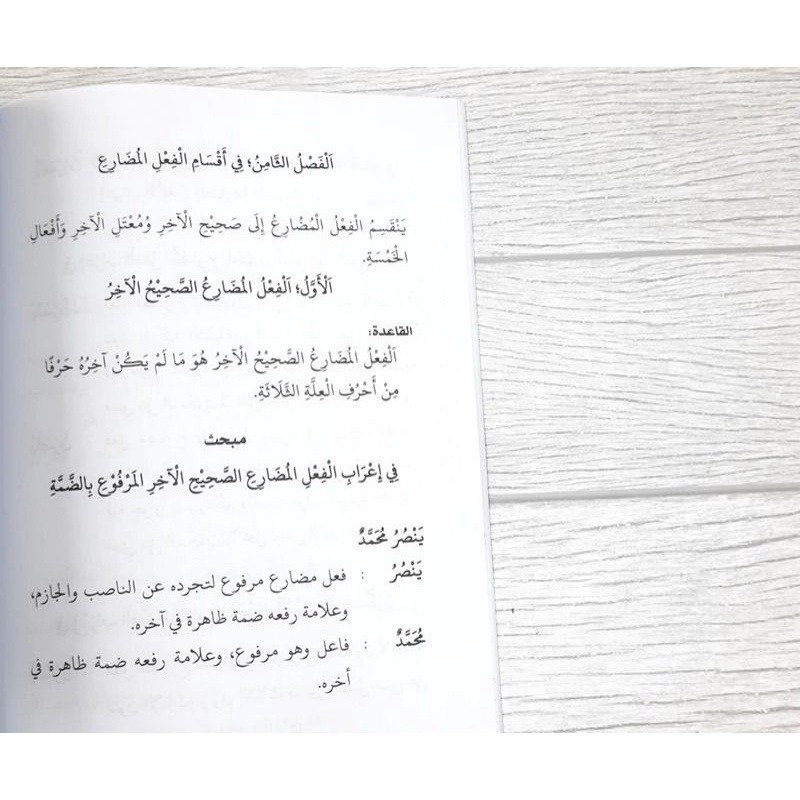 اَلْفَصْلُ الثَّامِنُ؛ فِي أَقْسَامِ الْفِعْلِ المُضَارِعِ
يَنْقَسِمُ الْفِعْلُ الْمُضَارِعُ إِلَى صَحِيْحِ الْآخِرِ وَمُعْتَلِ الْآخِرِ وَأَفْعَالِ
الْخَمْسَةِ.
اَلْأَوَّلُ؛ اَلْفِعْلُ المُضَارِعُ الصَّحِيْحُ الْآخِرُ
القاعدة:
اَلْفِعْلُ المُضَارِعُ الصَّحِيْحُ الْآخِرُ هُوَ مَا لَمْ يَكُنْ آخِرُهُ حَرْفًا
مِنْ أَحْرُفِ الْعِلَّةِ الثَّلَاثَةِ.
مبحث
فِي إِعْرَابِ الْفِعْلِ المُضَارِعِ الصَّحِيْحِ الْآخِرِ المَرْفُوْعِ بِالضَّمَّةِ
يَنْصُرُ مُحَمَّدٌ
يَنْصُرُ : فعل مضارع مرفوع لتجرده عن الناصب والجازم،
وعلامة رفعه ضمة ظاهرة في آخره.
مُحَمَّدٌ : فاعل وهو مرفوع، وعلامة رفعه ضمة ظاهرة في
أخره.